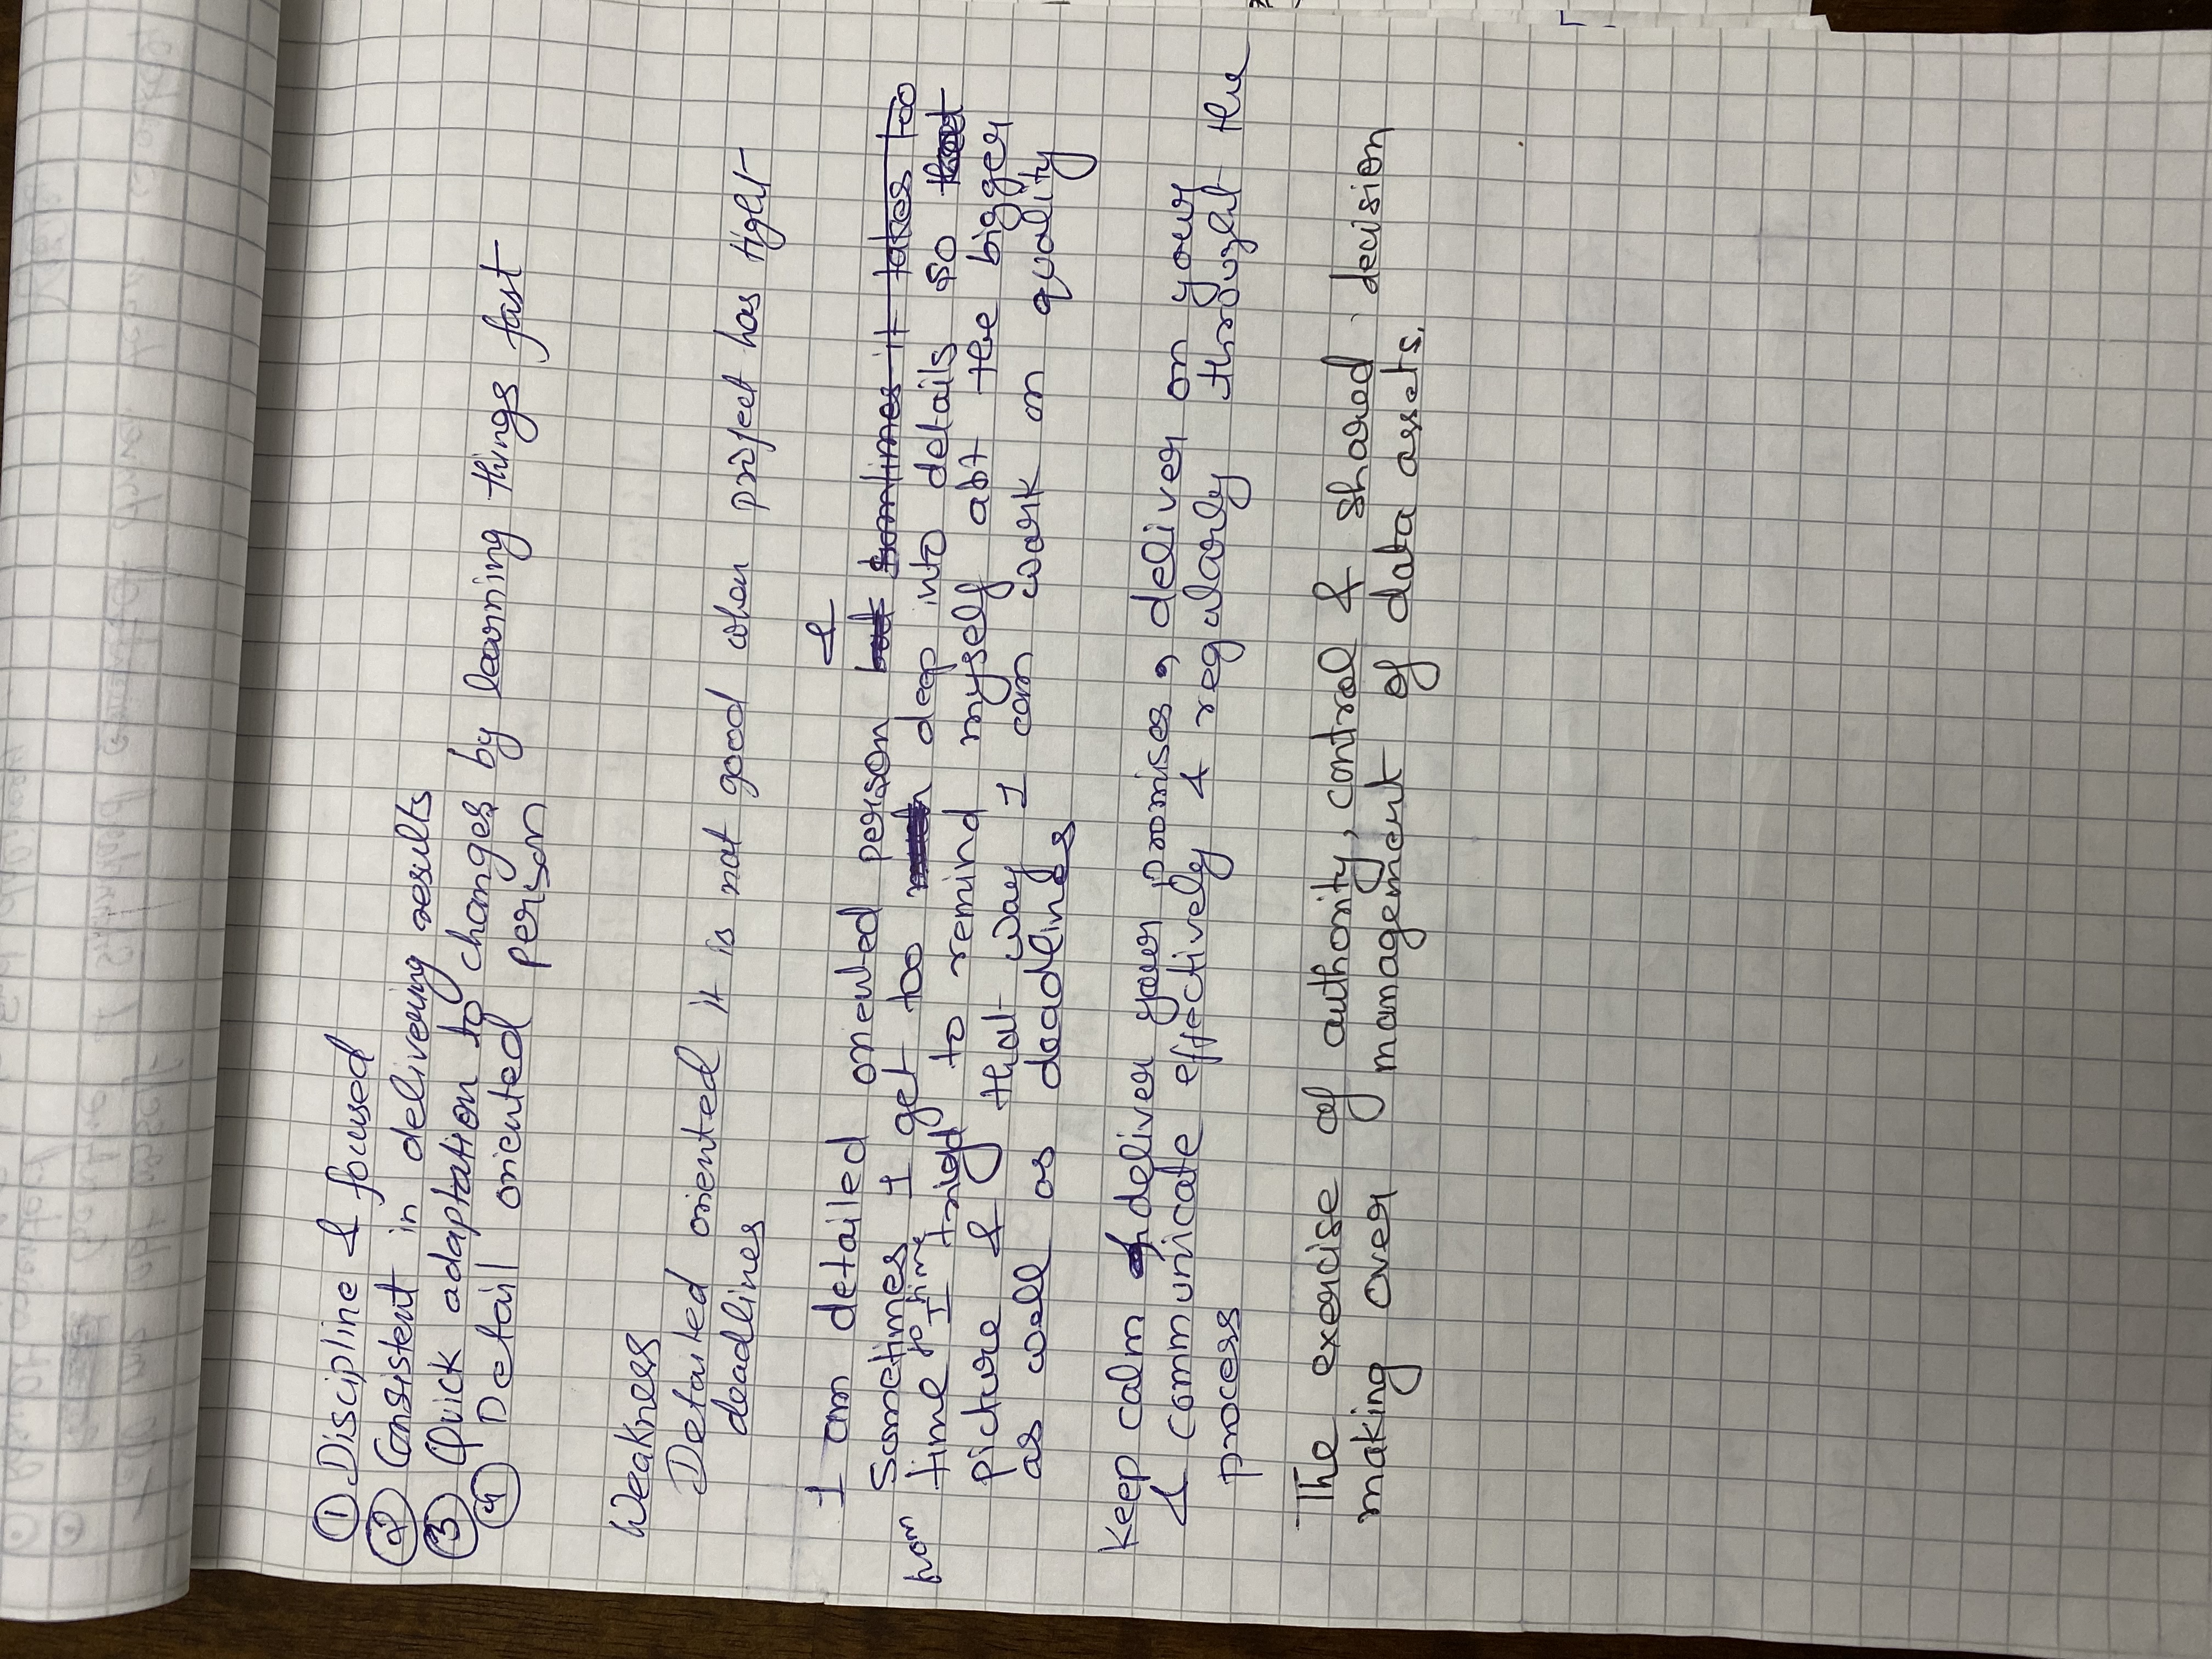 ① Discipline & focused
② Consistent in delivering results
③ Quick adaptation to changes by learning things fast
④ Detail oriented person
Weakness
Detailed oriented it is not good when project has tight
deadlines
&
I am detailed oriented person but somtimes it takes too
sometimes I get too much deep into details so that
from time to time I tried to remind myself abt the bigger
picture & that way I can work on quality
as well as deadlines
Keep calm deliver your promises, deliver on your
& communicate effectively & regularly throught the
process
The exercise of authority, control & shared decision
making over management of data assets.